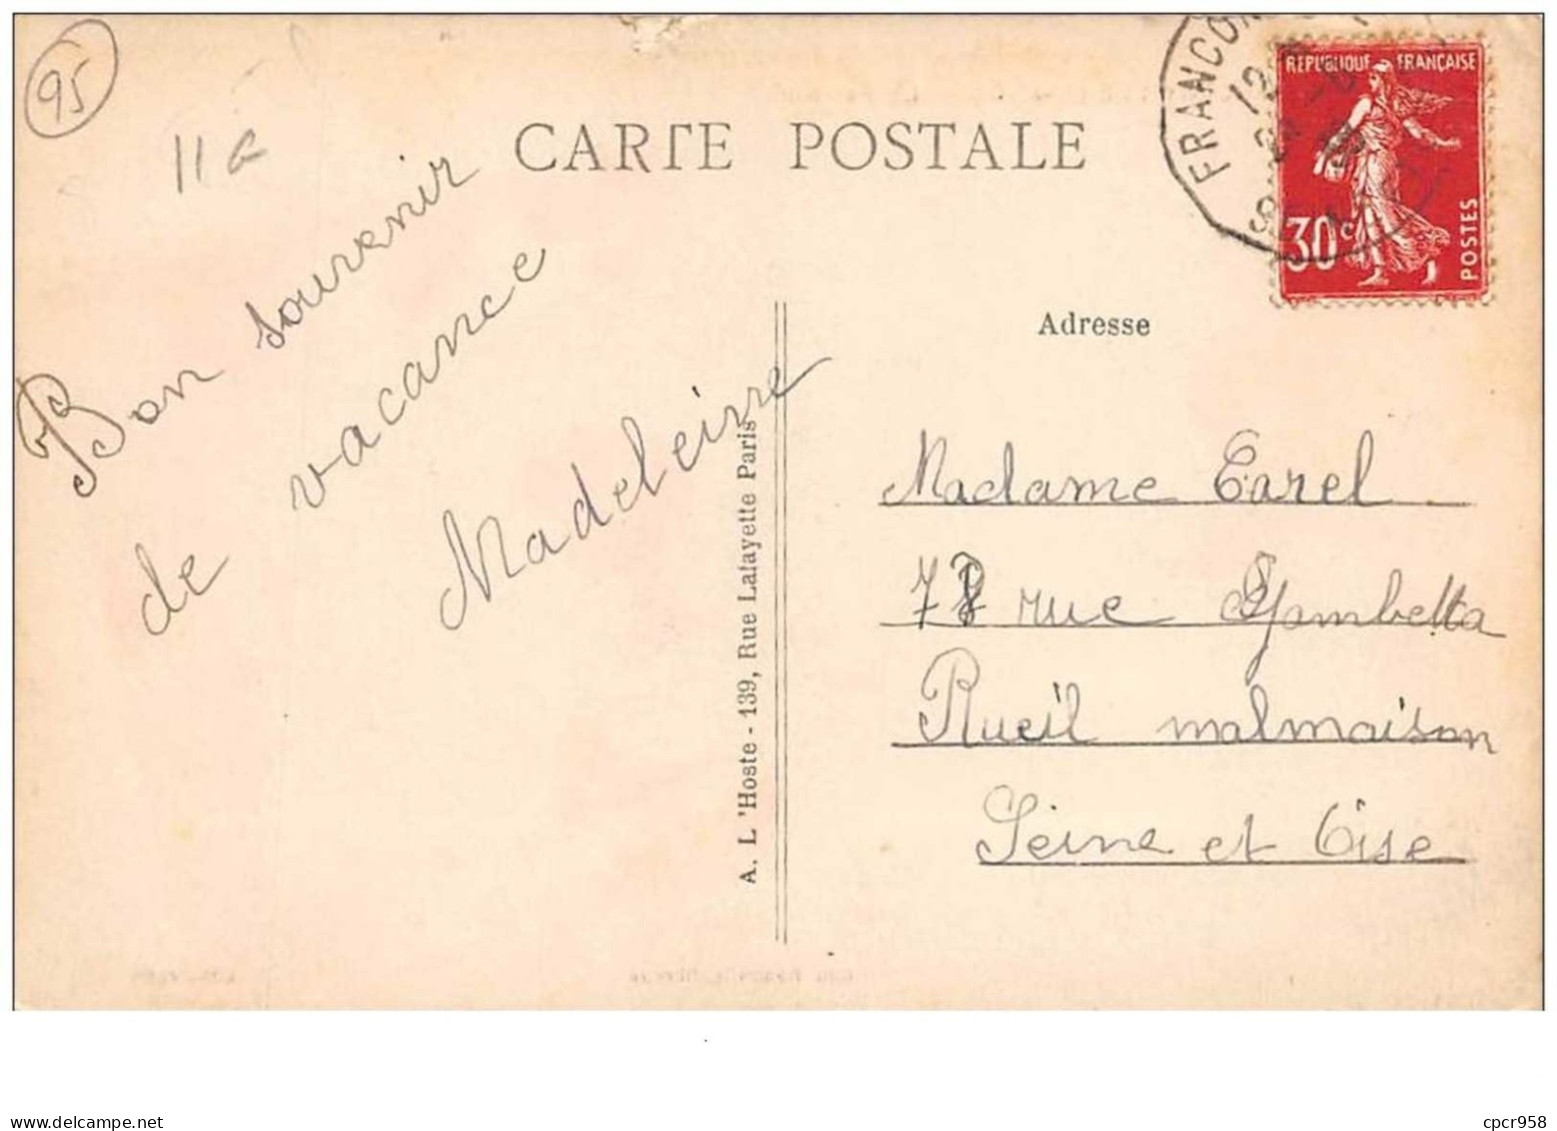 95
11a
CARTE POSTALE
FRANCON
12
RÉPUBLIQUE FRANÇAISE
30c
POSTES
Bon souvenir
de vacance
Madeleine
Adresse
Madame Carel
78 rue Gambetta
Rueil malmaison
Seine et Oise
A. L'Hoste - 139, Rue Lafayette Paris
delcampe.net
cpcr958